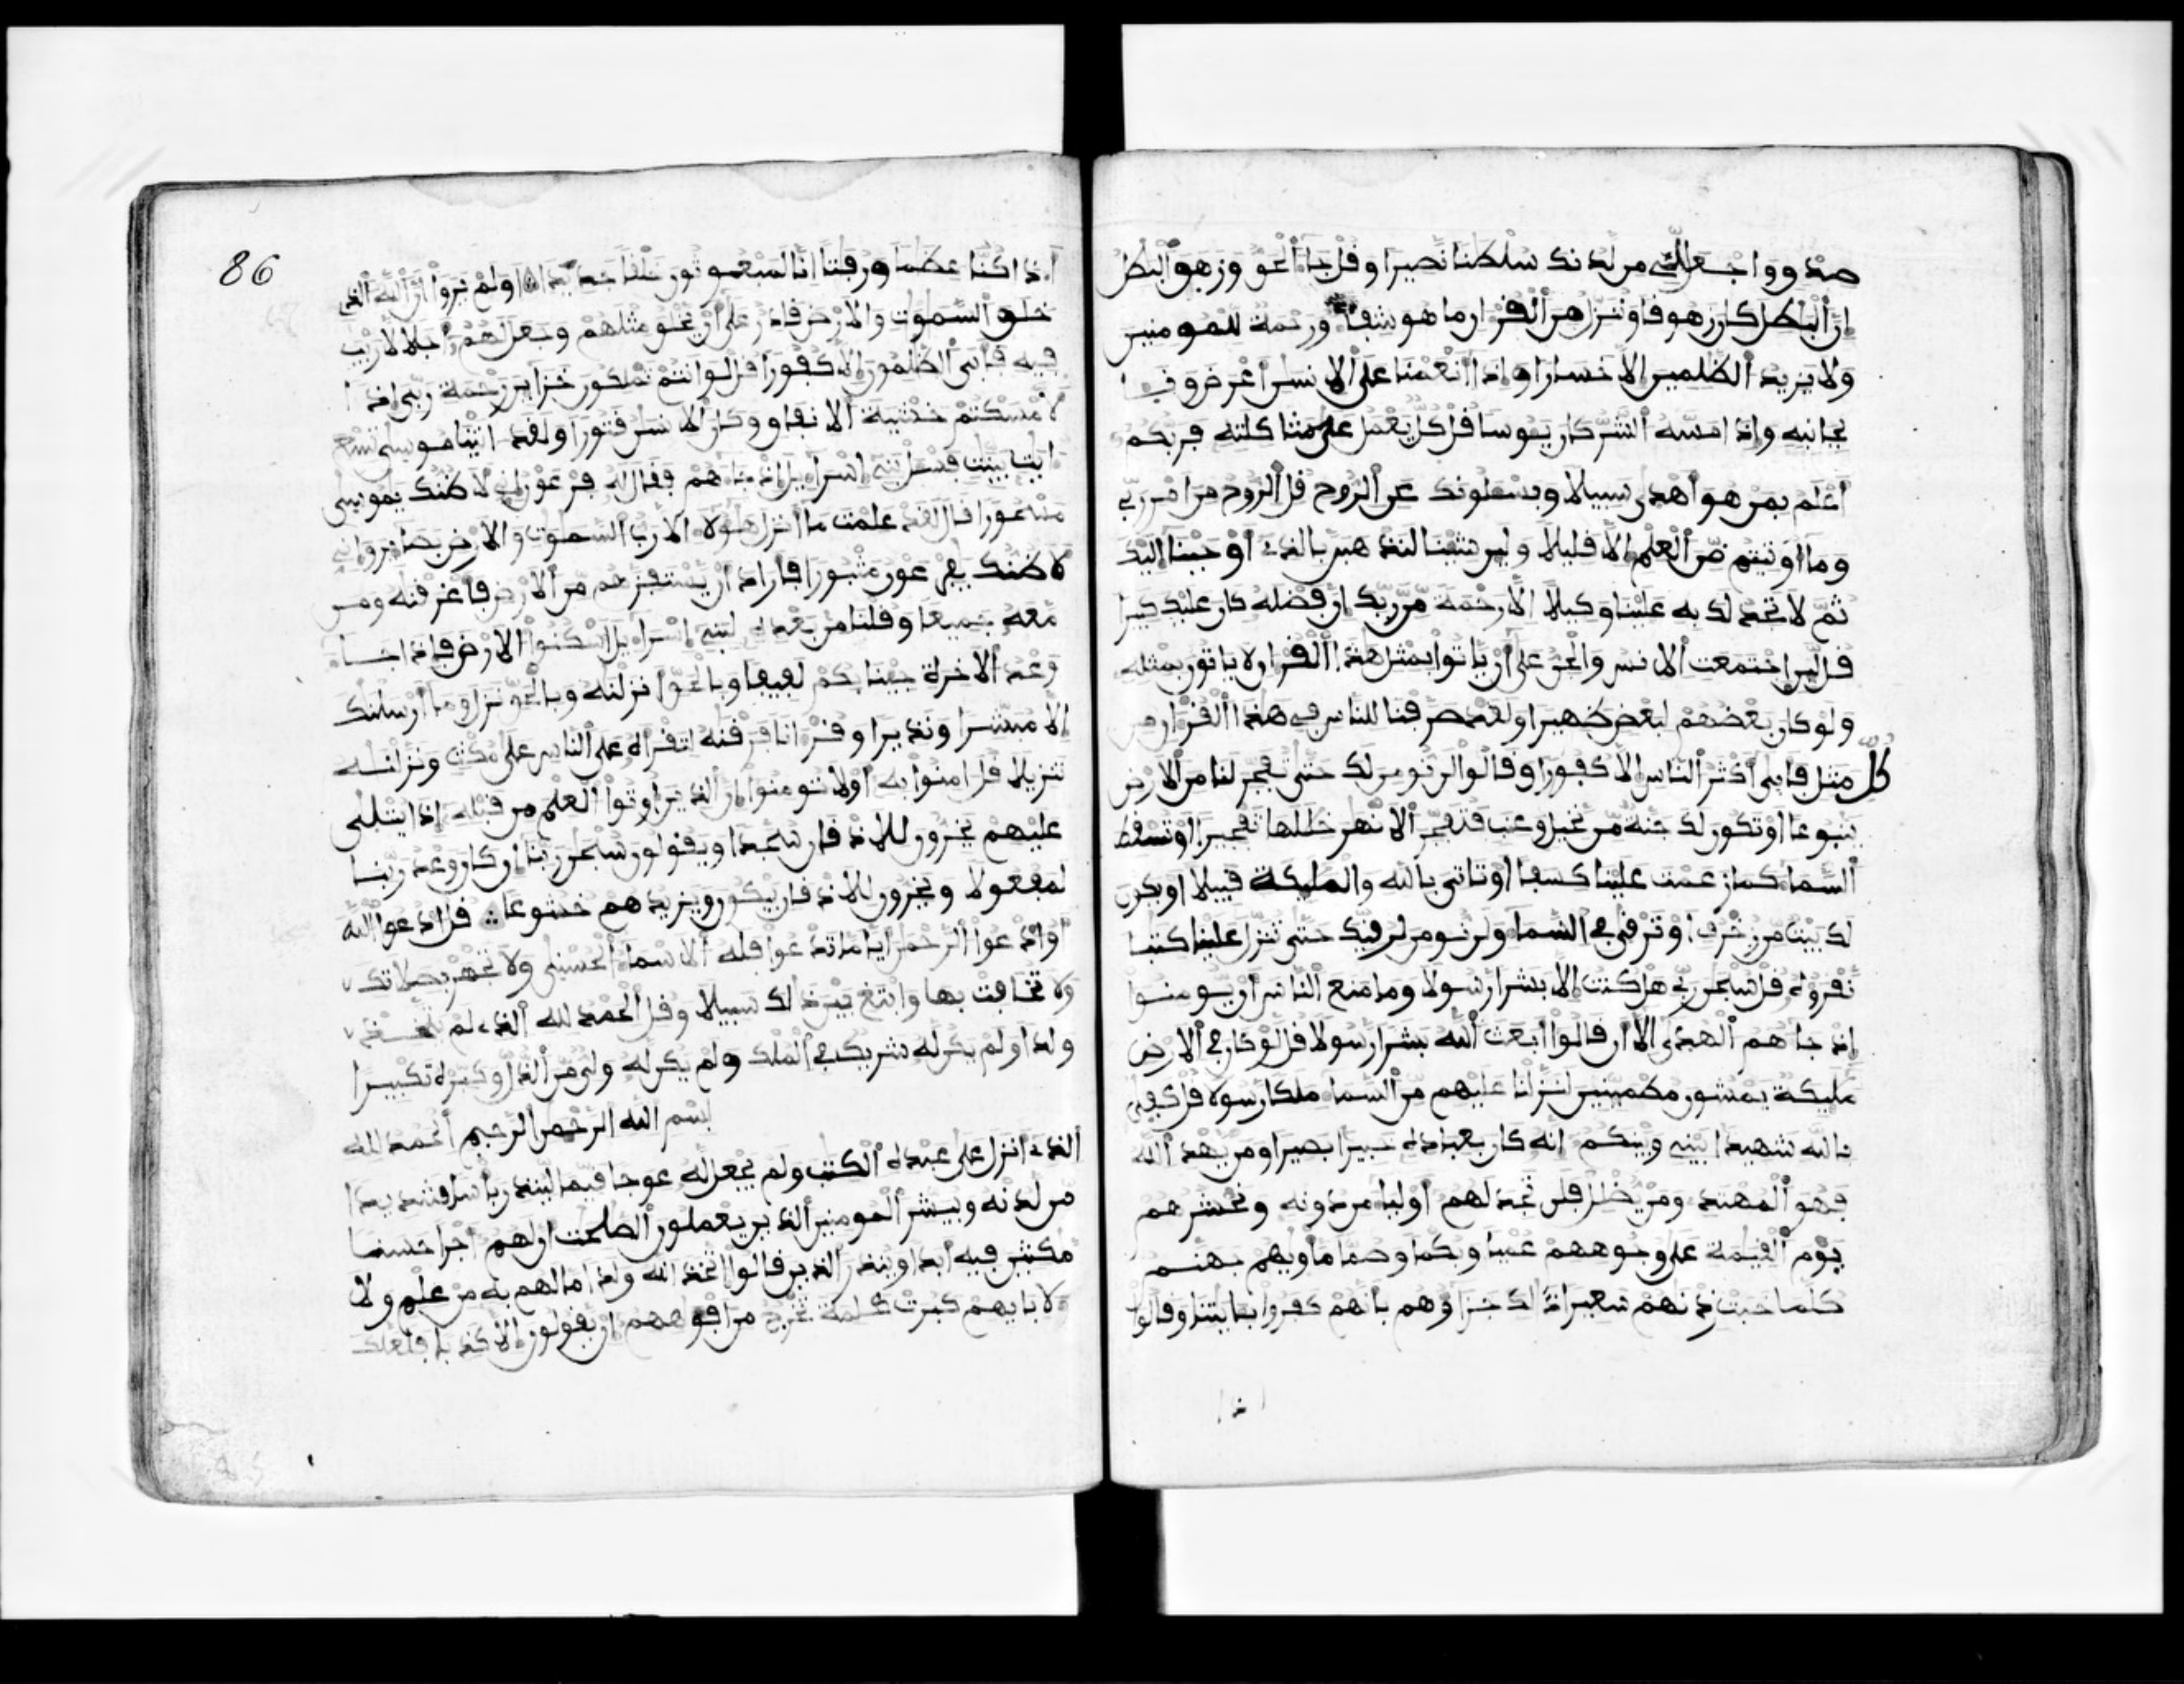 صدق واجعل لي من لدنك سلطنا نصيرا وقل جا الحق وزهق البطل
ان البطل كان زهوقا وننزل من القران ما هو شفا ورحمة للمومنين
ولا يزيد الظلمين الا خسارا واذا انعمنا على الانسن اعرض ونـا
بجانبه واذا مسه الشر كان يوسا قل كل يعمل على شاكلته فربكم
اعلم بمن هو اهدى سبيلا ويسلونك عن الروح قل الروح من امر ربي
وما اوتيتم من العلم الا قليلا ولين شينا لنذهبن بالذي اوحينا اليك
ثم لا تجد لك به علينا وكيلا الا رحمة من ربك ان فضله كان عليك كبيرا
قل لين اجتمعت الانس والجن على ان ياتوا بمثل هذا القران لا ياتون بمثله
ولو كان بعضهم لبعض ظهيرا ولقد صرفنا للناس في هذا القران من
كل مثل فابى اكثر الناس الا كفورا وقالوا لن نومن لك حتى تفجر لنا من الارض
ينبوعا او تكون لك جنة من نخيل وعنب فتفجر الانهر خللها تفجيرا او تسقط
السما كما زعمت علينا كسفا او تاتي بالله والمليكة قبيلا او يكون
لك بيت من زخرف او ترقى في السما ولن نومن لرقيك حتى تنزل علينا كتبا
نقروه قل سبحن ربي هل كنت الا بشرا رسولا وما منع الناس ان يومنوا
اذ جاهم الهدى الا ان قالوا ابعث الله بشرا رسولا قل لو كان في الارض
مليكة يمشون مطمينين لنزلنا عليهم من السما ملكا رسولا قل كفى
بالله شهيدا بيني وبينكم انه كان بعباده خبيرا بصيرا ومن يهد الله
فهو المهتد ومن يضلل فلن تجد لهم اوليا من دونه ونحشرهم
يوم القيمة على وجوههم عميا وبكما وصما ماويهم جهنم
كلما خبت زدنهم سعيرا ذلك جزاوهم بانهم كفروا بايتنا وقالوا
86
اذا كنا عظما ورفتا انا لمبعوثون خلقا جديدا اولم يروا ان الله الذي
خلق السموت والارض قادر على ان يخلق مثلهم وجعل لهم اجلا لا ريب
فيه فابى الظلمون الا كفورا قل لو انتم تملكون خزاين رحمة ربي اذا
لامسكتم خشية الانفاق وكان الانسن قتورا ولقد اتينا موسى تسع
ايت بينت فسل بني اسرايل اذ جاهم فقال له فرعون اني لاظنك يموسى
مسحورا قال لقد علمت ما انزل هولا الا رب السموت والارض بصاير واني
لاظنك يفرعون مثبورا فاراد ان يستفزهم من الارض فاغرقنه ومن
معه جميعا وقلنا من بعده لبني اسرايل اسكنوا الارض فاذا جا
وعد الاخرة جينا بكم لفيفا وبالحق انزلنه وبالحق نزل وما ارسلنك
الا مبشرا ونذيرا وقرانا فرقنه لتقراه على الناس على مكث ونزلنه
تنزيلا قل امنوا به اولا تومنوا ان الذين اوتوا العلم من قبله اذا يتلى
عليهم يخرون للاذقان سجدا ويقولون سبحن ربنا ان كان وعد ربنا
لمفعولا ويخرون للاذقان يبكون ويزيدهم خشوعا قل ادعوا الله
او ادعوا الرحمن ايا ما تدعوا فله الاسما الحسنى ولا تجهر بصلاتك
ولا تخافت بها وابتغ بين ذلك سبيلا وقل الحمد لله الذي لم يتخذ
ولدا ولم يكن له شريك في الملك ولم يكن له ولي من الذل وكبره تكبيرا
بسم الله الرحمن الرحيم الحمد لله
الذي انزل على عبده الكتب ولم يجعل له عوجا قيما لينذر باسا شديدا
من لدنه ويبشر المومنين الذين يعملون الصلحت ان لهم اجرا حسنا
مكثين فيه ابدا وينذر الذين قالوا اتخذ الله ولدا ما لهم به من علم ولا
لابايهم كبرت كلمة تخرج من افوههم ان يقولون الا كذبا فلعلك